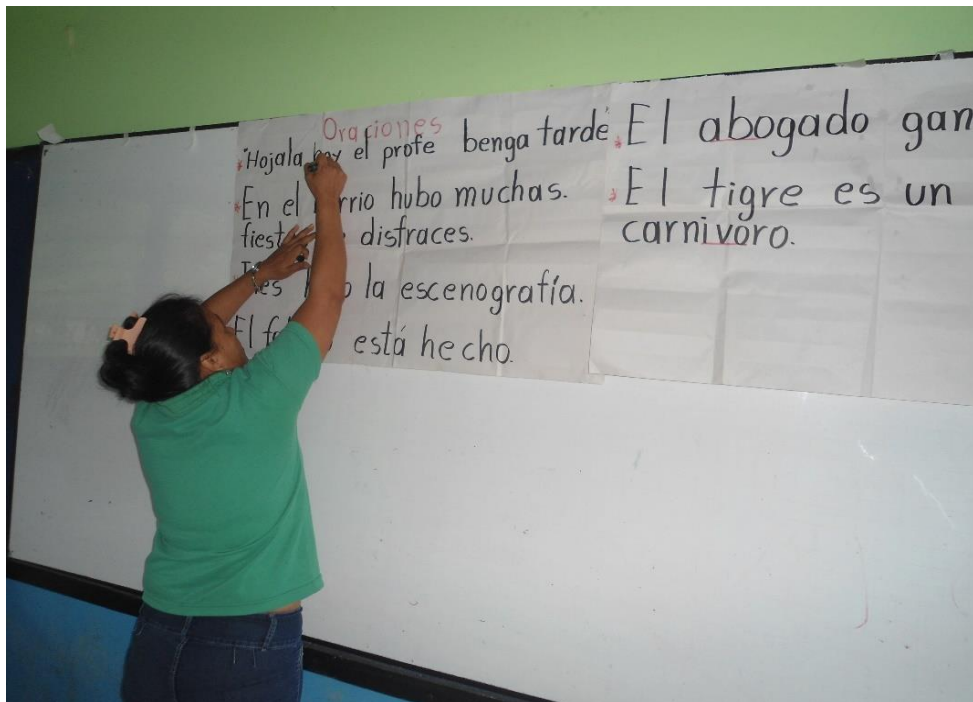 Oraciones
"Hojala hoy el profe benga tarde
En el barrio hubo muchas.
disfraces.
la escenografía.
El está hecho.
El abogado gan
El tigre es un
carnivoro.